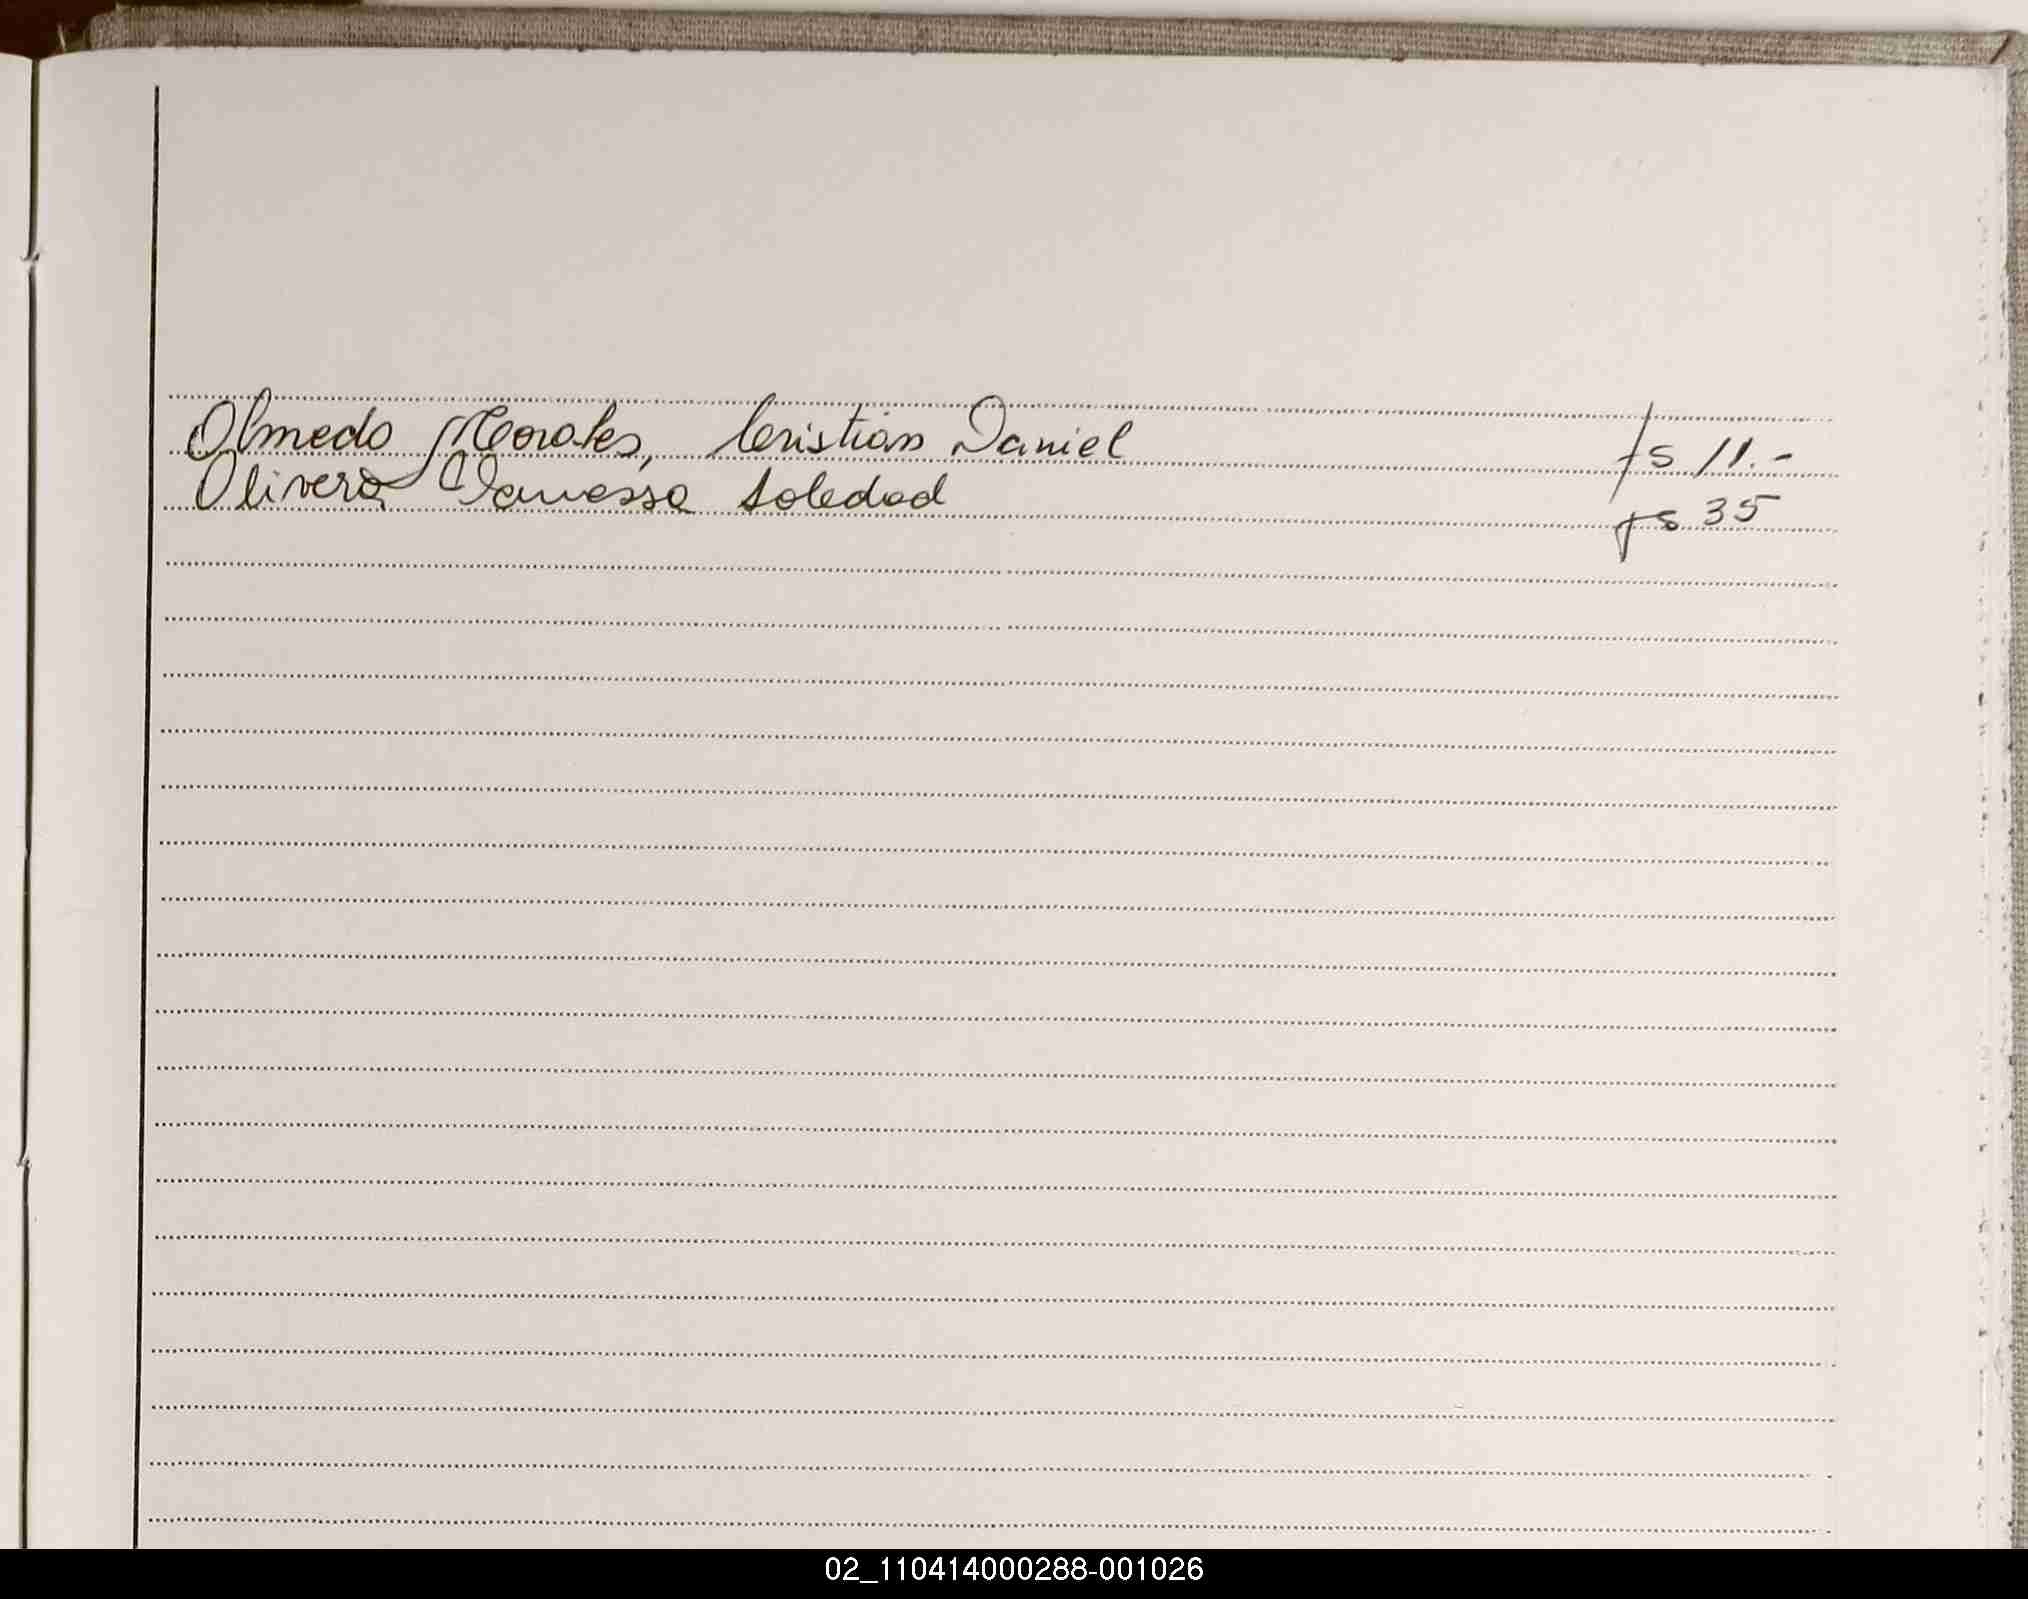 Olmedo Morales, Cristian Daniel fs 11.-
Olivera Vanessa Soledad fs 35
02_110414000288-001026